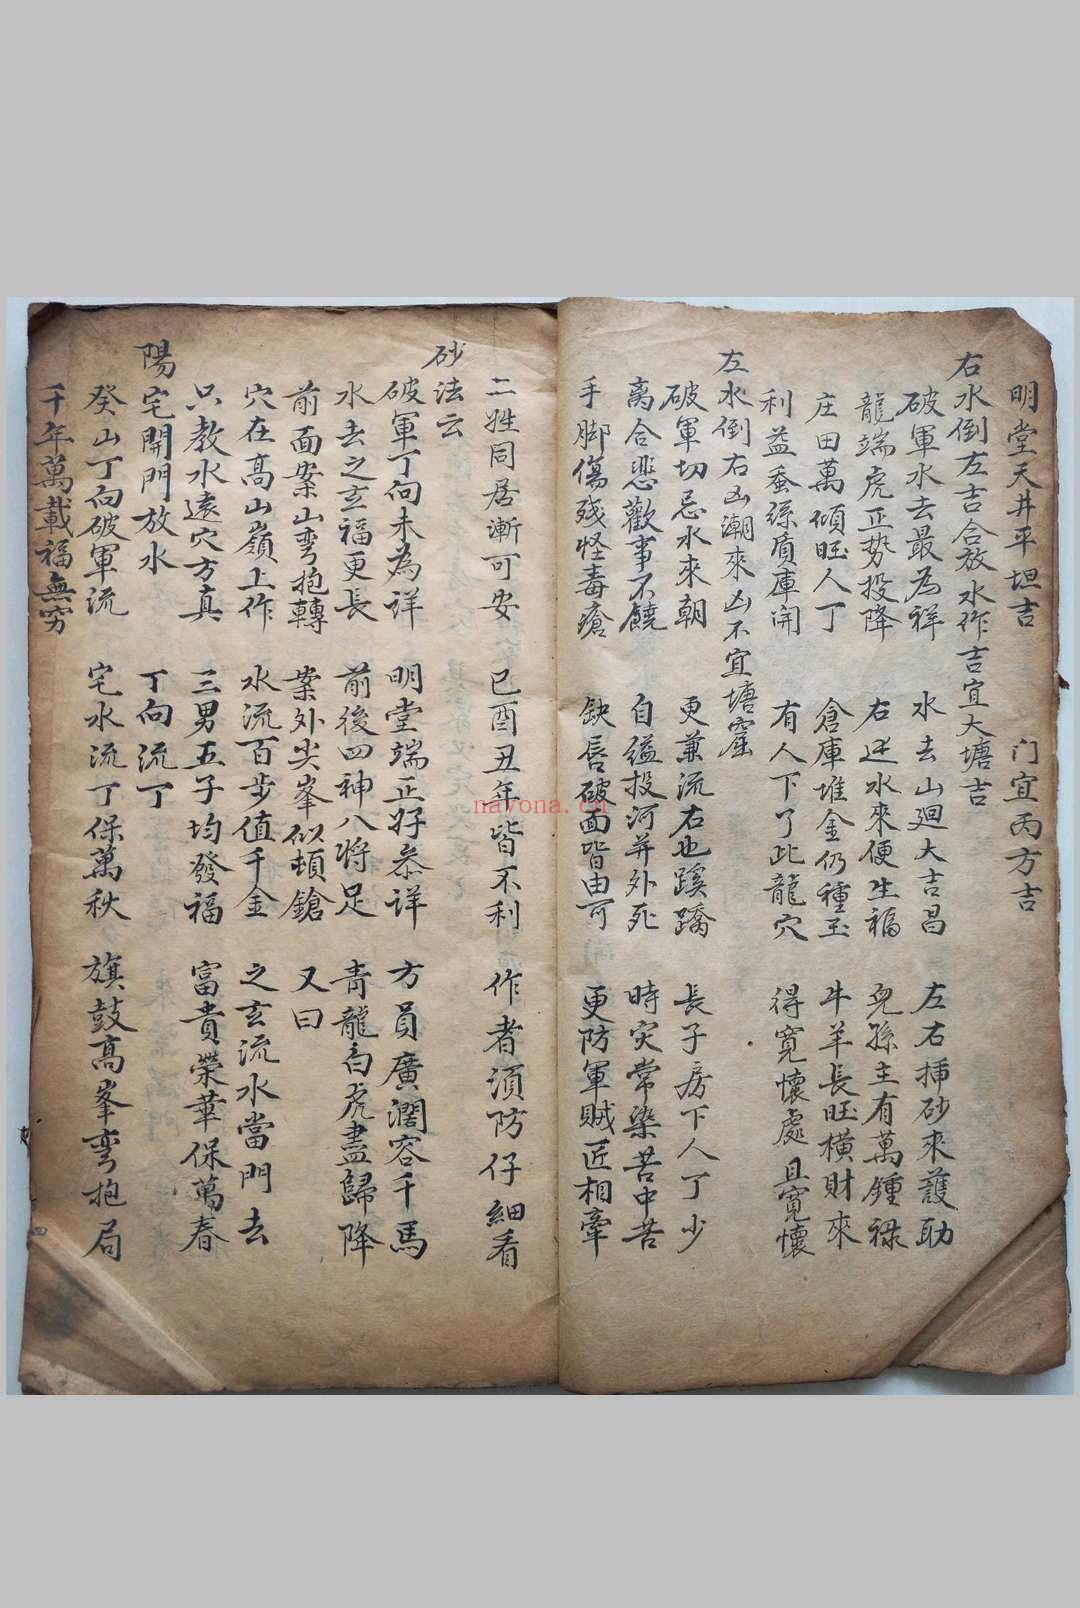 明堂天井平坦吉 门宜丙方吉
右水倒左吉合放水作吉宜大塘吉
破軍水去最為祥 水去山廻大吉昌 左右揷砂來護助
龍端虎正势投降 右迎水來便生福 兒孫主有萬鍾禄
庄田萬傾旺人丁 倉庫堆金仍種玉 牛羊長旺橫財來
利益蚕絲質庫開 有人下了此龍穴 得寛懷處且寛懷
左水倒右凶潮來凶不宜塘窟
破軍切忌水來朝 更兼流右也蹊蹺 長子房下人丁少
离合悲歡事不饒 自縊投河并外死 時灾常染苦中苦
手脚傷殘怪毒瘡 缺唇破面皆由可 更防軍賊匠相牽
二姓同居漸可安 巳酉丑年皆不利 作者須防仔細看
砂法云
破軍丁向未為详 明堂端正好叅详 方員廣濶容千馬
水去之玄福更長 前後四神八將足 青龍白虎盡歸降
前面案山弯抱轉 案外尖峯似頓鎗 又曰
穴在高山嶺上作 水流百步值千金 之玄流水當門去
只教水遠穴方真 三男五子均發福 富貴榮華保萬春
陽宅開門放水 丁向流丁
癸山丁向破軍流 宅水流丁保萬秋 旗鼓高峯弯抱局
千年萬載福無穷
nayona.cn